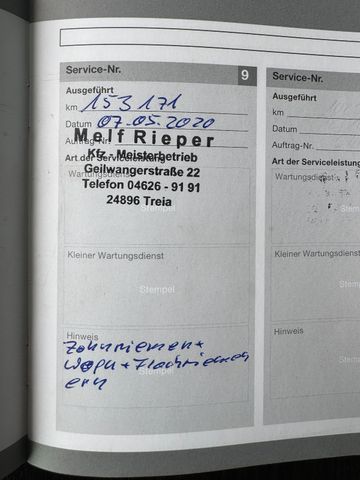 Service-Nr.
9
Ausgeführt
km 153171
Datum 07.05.2020
Auftrag-Nr.
Melf Rieper
Art der Serviceleistung
Kfz - Meisterbetrieb
Wartungsdienst
Geilwangerstraße 22
Telefon 04626 - 91 91
24896 Treia
Stempel
Kleiner Wartungsdienst
Stempel
Hinweis
Zahnriemen +
Wapu + Flachriemen
ern
Stempel
Service-Nr.
Ausgeführt
km
Datum
Auftrag-Nr.
Art der Serviceleistung
Wartungsdienst
Kleiner Wartungsdienst
Hinweis